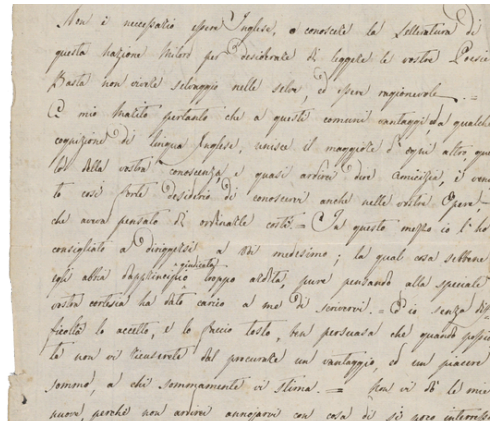 Non è necessario essere Inglese, o conoscere la Letteratura di
questa nazione Milord per desiderare di leggere le vostre Poesie
Basta non vivere selvaggio nelle selve, ed essere ragionevole. =
E mio Marito pertanto che a questi comuni vantaggi, ed a qualche
cognizione di lingua Inglese, unisce il maggiore d'ogni altro, que
lo della vostra conoscenza, e quasi ardirei dire Amicizia, è venu
to così forte desiderio di conoscervi anche nelle vostre Opere,
che aveva pensato di ordinarle costì. = In questo mezzo io l'ho
consigliato a diriggersi a Voi medesimo; la qual cosa sebbene
egli abbia dapprincipio giudicato troppo ardita, pure pensando alla speciale
vostra cortesia ha dato carico a me di scrivervi. = Ed io senza dif
ficoltà lo accetto, e lo faccio tosto, ben persuasa che quando possia
te non vi ricuserete dal procurare un vantaggio, ed un piacere
sommo, a chi sommamente vi stima. = Non vi dò le mie
nuove perchè non ardirei annojarvi con cosa di sì poco interesse